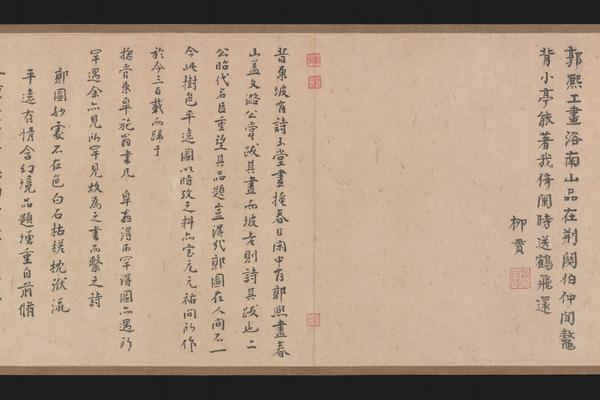 郭熙工畫洛南山品在荊關伯仲間鼇
背小亭能著我倚闌時送鶴飛還
柳貫
昔東坡有詩玉堂畫掩春日閑中有郭熙畫春
山蓋文潞公嘗跋其畫而坡老則詩其跋也二
公昭代名臣重望其品題豈得郭圖在人間不一
今此樹色平遠圖以時攷之料亦元元祐間所作
於今三百載而歸于
管東皐施翁書几 皐翁得所罕得圖亦遇所
罕遇余亦見所罕見故為之書而繫之詩
郭圖妙處不在色白石枯槎枕流
平遠有情含幻境品題增重自前脩